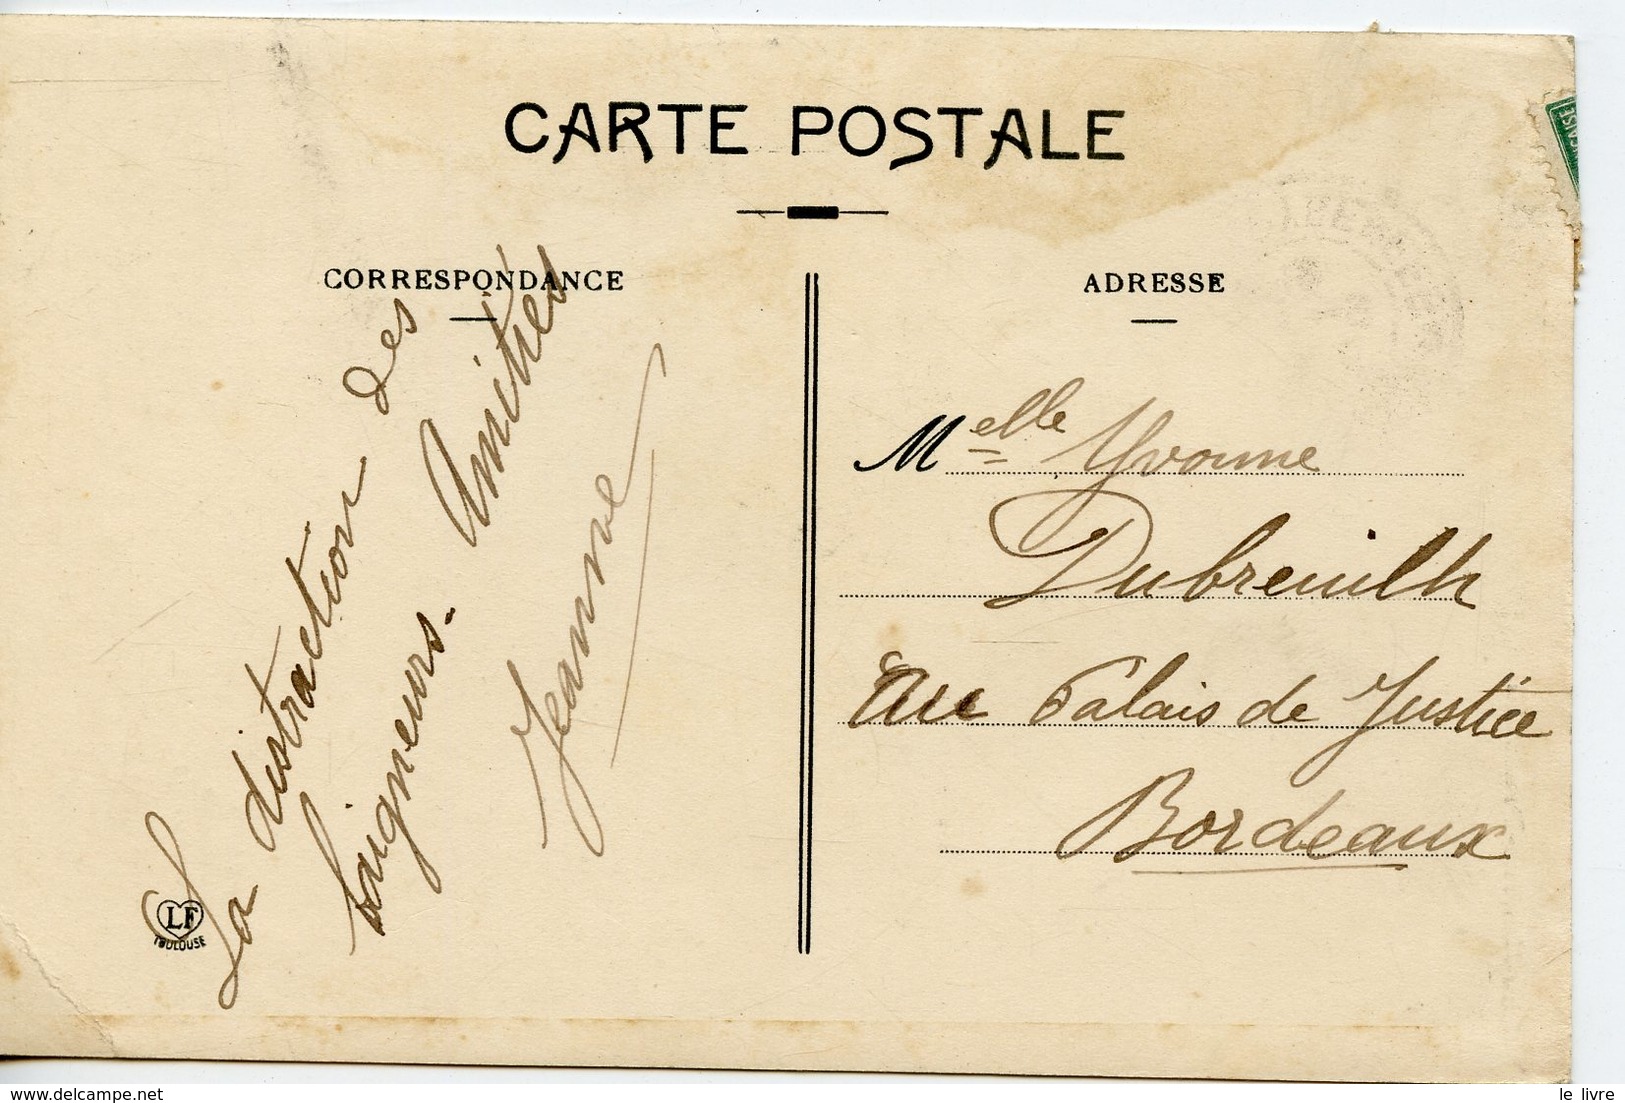 CARTE POSTALE
CORRESPONDANCE
La distraction des
baigneurs. Amitiés
Jeanne
LF
TOULOUSE
ADRESSE
Melle Yvonne
Dubreuilh
au Palais de Justice
Bordeaux
delcampe.net
le livre